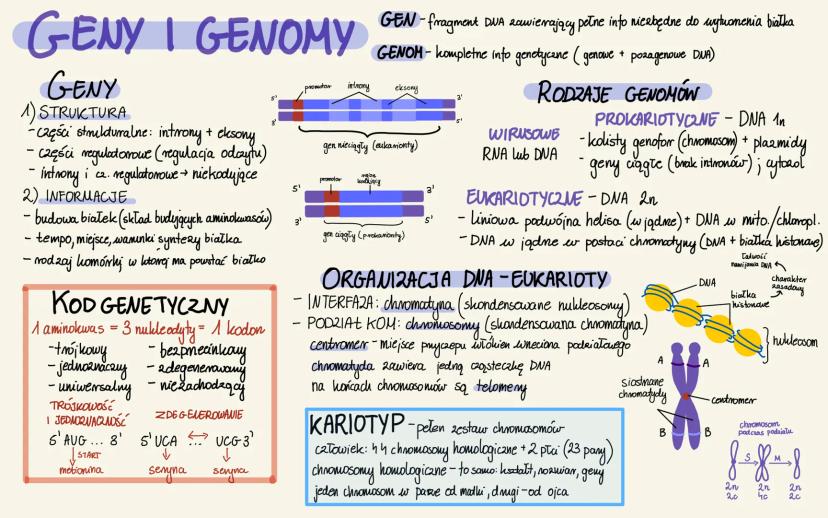 GENY I GENOMY
GEN - fragment DNA zawierający pełne info niezbędne do wytworzenia białka
GENOM - kompletne info genetyczne (genowe + pozagenowe DNA)
GENY
1) STRUKTURA
- części strukturalne: introny + eksony
- części regulatorowe (regulacja odczytu)
- introny i cz. regulatorowe → niekodujące
2) INFORMACJE
- budowa białek (skład budujących aminokwasów)
- tempo, miejsce, warunki syntezy białka
- rodzaj komórki w której ma powstać białko
promotor
introny
eksony
5'
3'
3'
5'
gen nieciągły (eukarionty)
promotor
5'
3'
3'
5'
gen ciągły (prokarionty)
RODZAJE GENOMÓW
WIRUSOWE
RNA lub DNA
PROKARIOTYCZNE - DNA 1n
- kolisty genofor (chromosom) + plazmidy
- geny ciągłe (brak intronów) ; cytozol
EUKARIOTYCZNE - DNA 2n
- liniowa podwójna helisa (w jądrze) + DNA w mito./chloropl.
- DNA w jądrze w postaci chromatyny (DNA + białka histonowe)
łatwość nawijania DNA
charakter zasadowy
KOD GENETYCZNY
1 aminokwas = 3 nukleotydy = 1 kodon
- trójkowy
- jednoznaczny
- uniwersalny
- bezprzecinkowy
- zdegenerowany
- niezachodzący
TRÓJKOWOŚĆ
I JEDNOZNACZNOŚĆ
5' AUG ... 3'
START
metionina
ZDEGENEROWANIE
5' UCA ↔ ... UCG 3'
seryna
seryna
ORGANIZACJA DNA - EUKARIOTY
- INTERFAZA: chromatyna (skondensowane nukleosomy)
- PODZIAŁ KOM: chromosomy (skondensowana chromatyna)
centromer - miejsce przyczepu włókien wrzeciona podziałowego
chromatyda zawiera jedną cząsteczkę DNA
na końcach chromosomów są telomery
DNA
białka histonowe
nukleosom
A
A
siostrzane chromatydy
centromer
B
B
KARIOTYP - pełen zestaw chromosomów
człowiek: 44 chromosomy homologiczne + 2 płci (23 pary)
chromosomy homologiczne - to samo: kształt, rozmiar, geny
jeden chromosom w parze od matki, drugi - od ojca
chromosom
podczas podziału
S
M
2n
2c
2n
4c
2n
2c